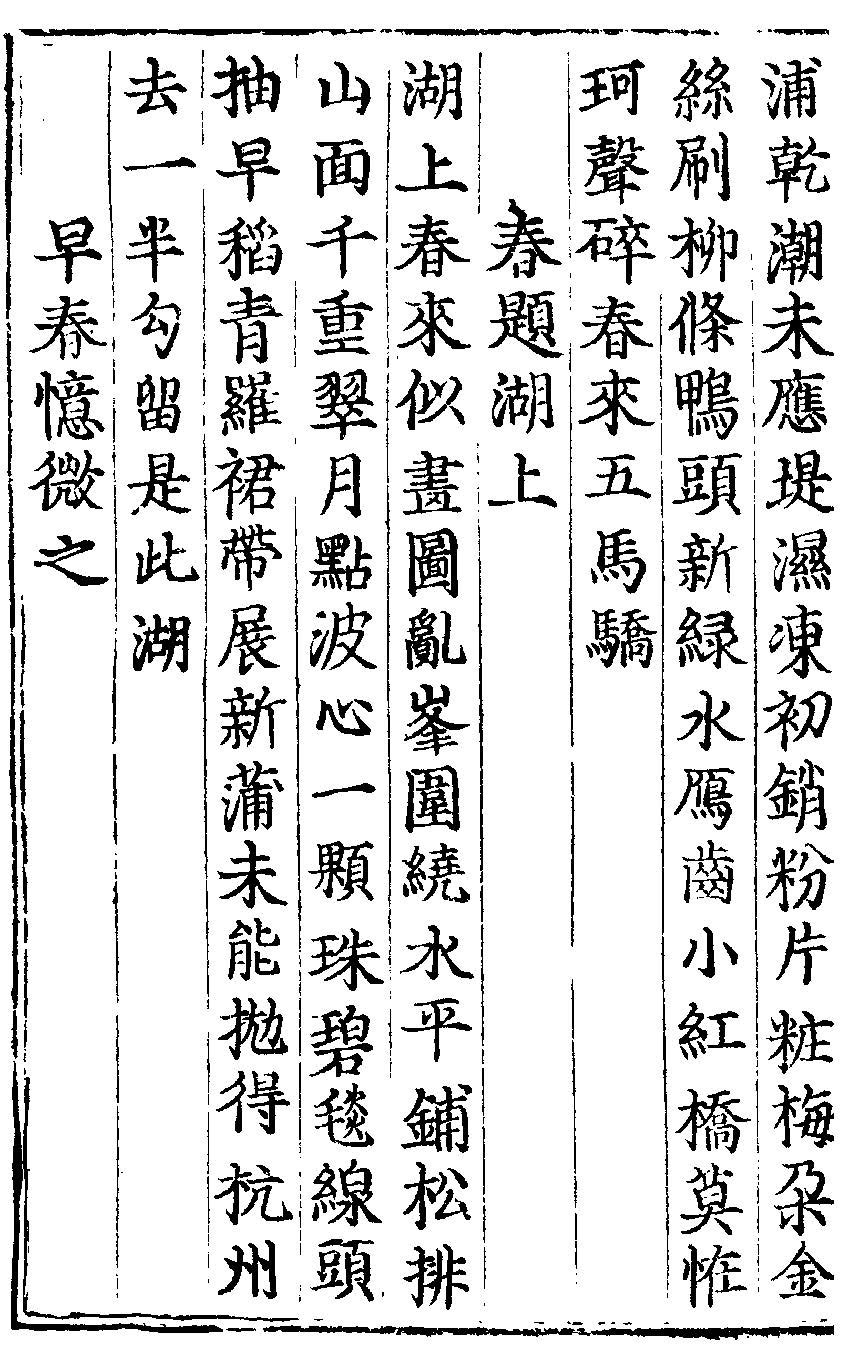 浦乾潮未應堤濕凍初銷粉片粧梅朶金
絲刷柳條鴨頭新緑水鴈齒小紅橋莫恠
珂聲碎春來五馬驕
春題湖上
湖上春來似畫圖亂峯圍繞水平鋪松排
山面千重翠月點波心一顆珠碧毯線頭
抽早稻青羅裙帶展新蒲未能抛得杭州
去一半勾留是此湖
早春憶微之